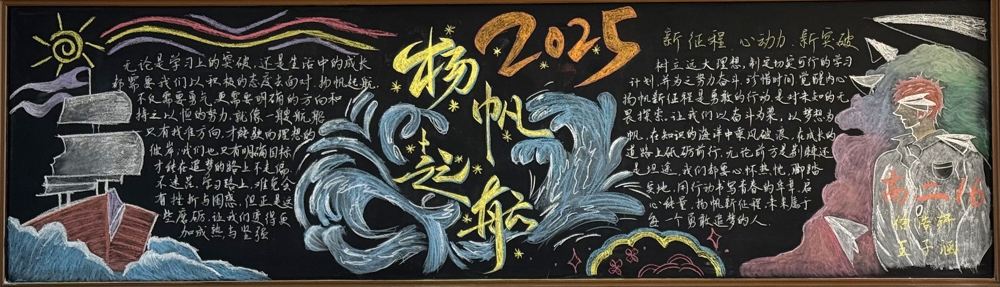 无论是学习上的突破,还是生活中的成长
都需要我们以积极的态度去面对,扬帆起航,
不仅需要勇气,更需要明确的方向和
持之以恒的努力,就像一艘航船
只有找准方向,才能驶向理想的
彼岸,我们也只有明确目标
才能在追梦的路上不走偏
不迷茫,学习路上,难免会
有挫折与困惑,但正是这
些磨砺,让我们变得更
加成熟与坚强
2025
扬
帆
起
航
新征程 心动力 新突破
树立远大理想,制定切实可行的学习
计划,并为之努力奋斗,珍惜时间,觉醒内心
扬帆新征程是勇敢的行动,是对未知的无
畏探索,让我们以奋斗为桨,以梦想为
帆,在知识的海洋中乘风破浪,在成长的
道路上砥砺前行,无论前方是荆棘还
是坦途,我们都要心怀热忱,脚踏
实地,用行动书写青春的华章,启
心能量,扬帆新征程,未来属于
每一个勇敢追梦的人.
高二16
王子涵